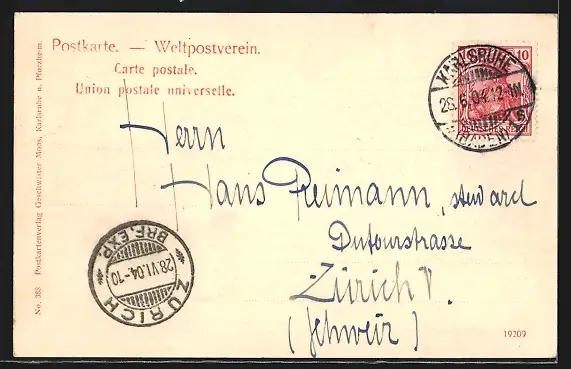 Postkarte. — Weltpostverein.
Carte postale.
Union postale universelle.
KARLSRUHE
28.6.04.12-1N
(BADEN)
10
Herrn
Hans Reimann, stud arch
Dufourstrasse
Zürich V.
(Schweiz)
ZÜRICH
28.VI.04.-10
BRF. EXP.
No. 383 Postkartenverlag Geschwister Moos, Karlsruhe u. Pforzheim.
19209